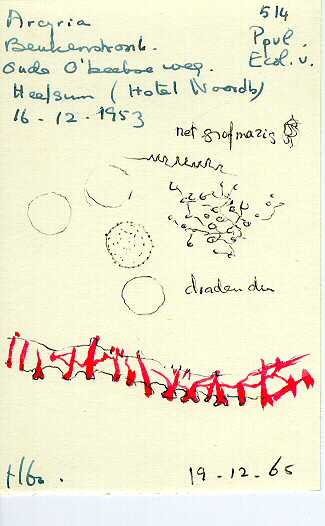 Arcyria
Beukenstronk.
Oude O'beekse weg.
Heelsum (Hotel Noordb)
16-12-1953
514
Ppul.
Ecol. v.
net grofmazig
draden dun
H60.
19-12-65